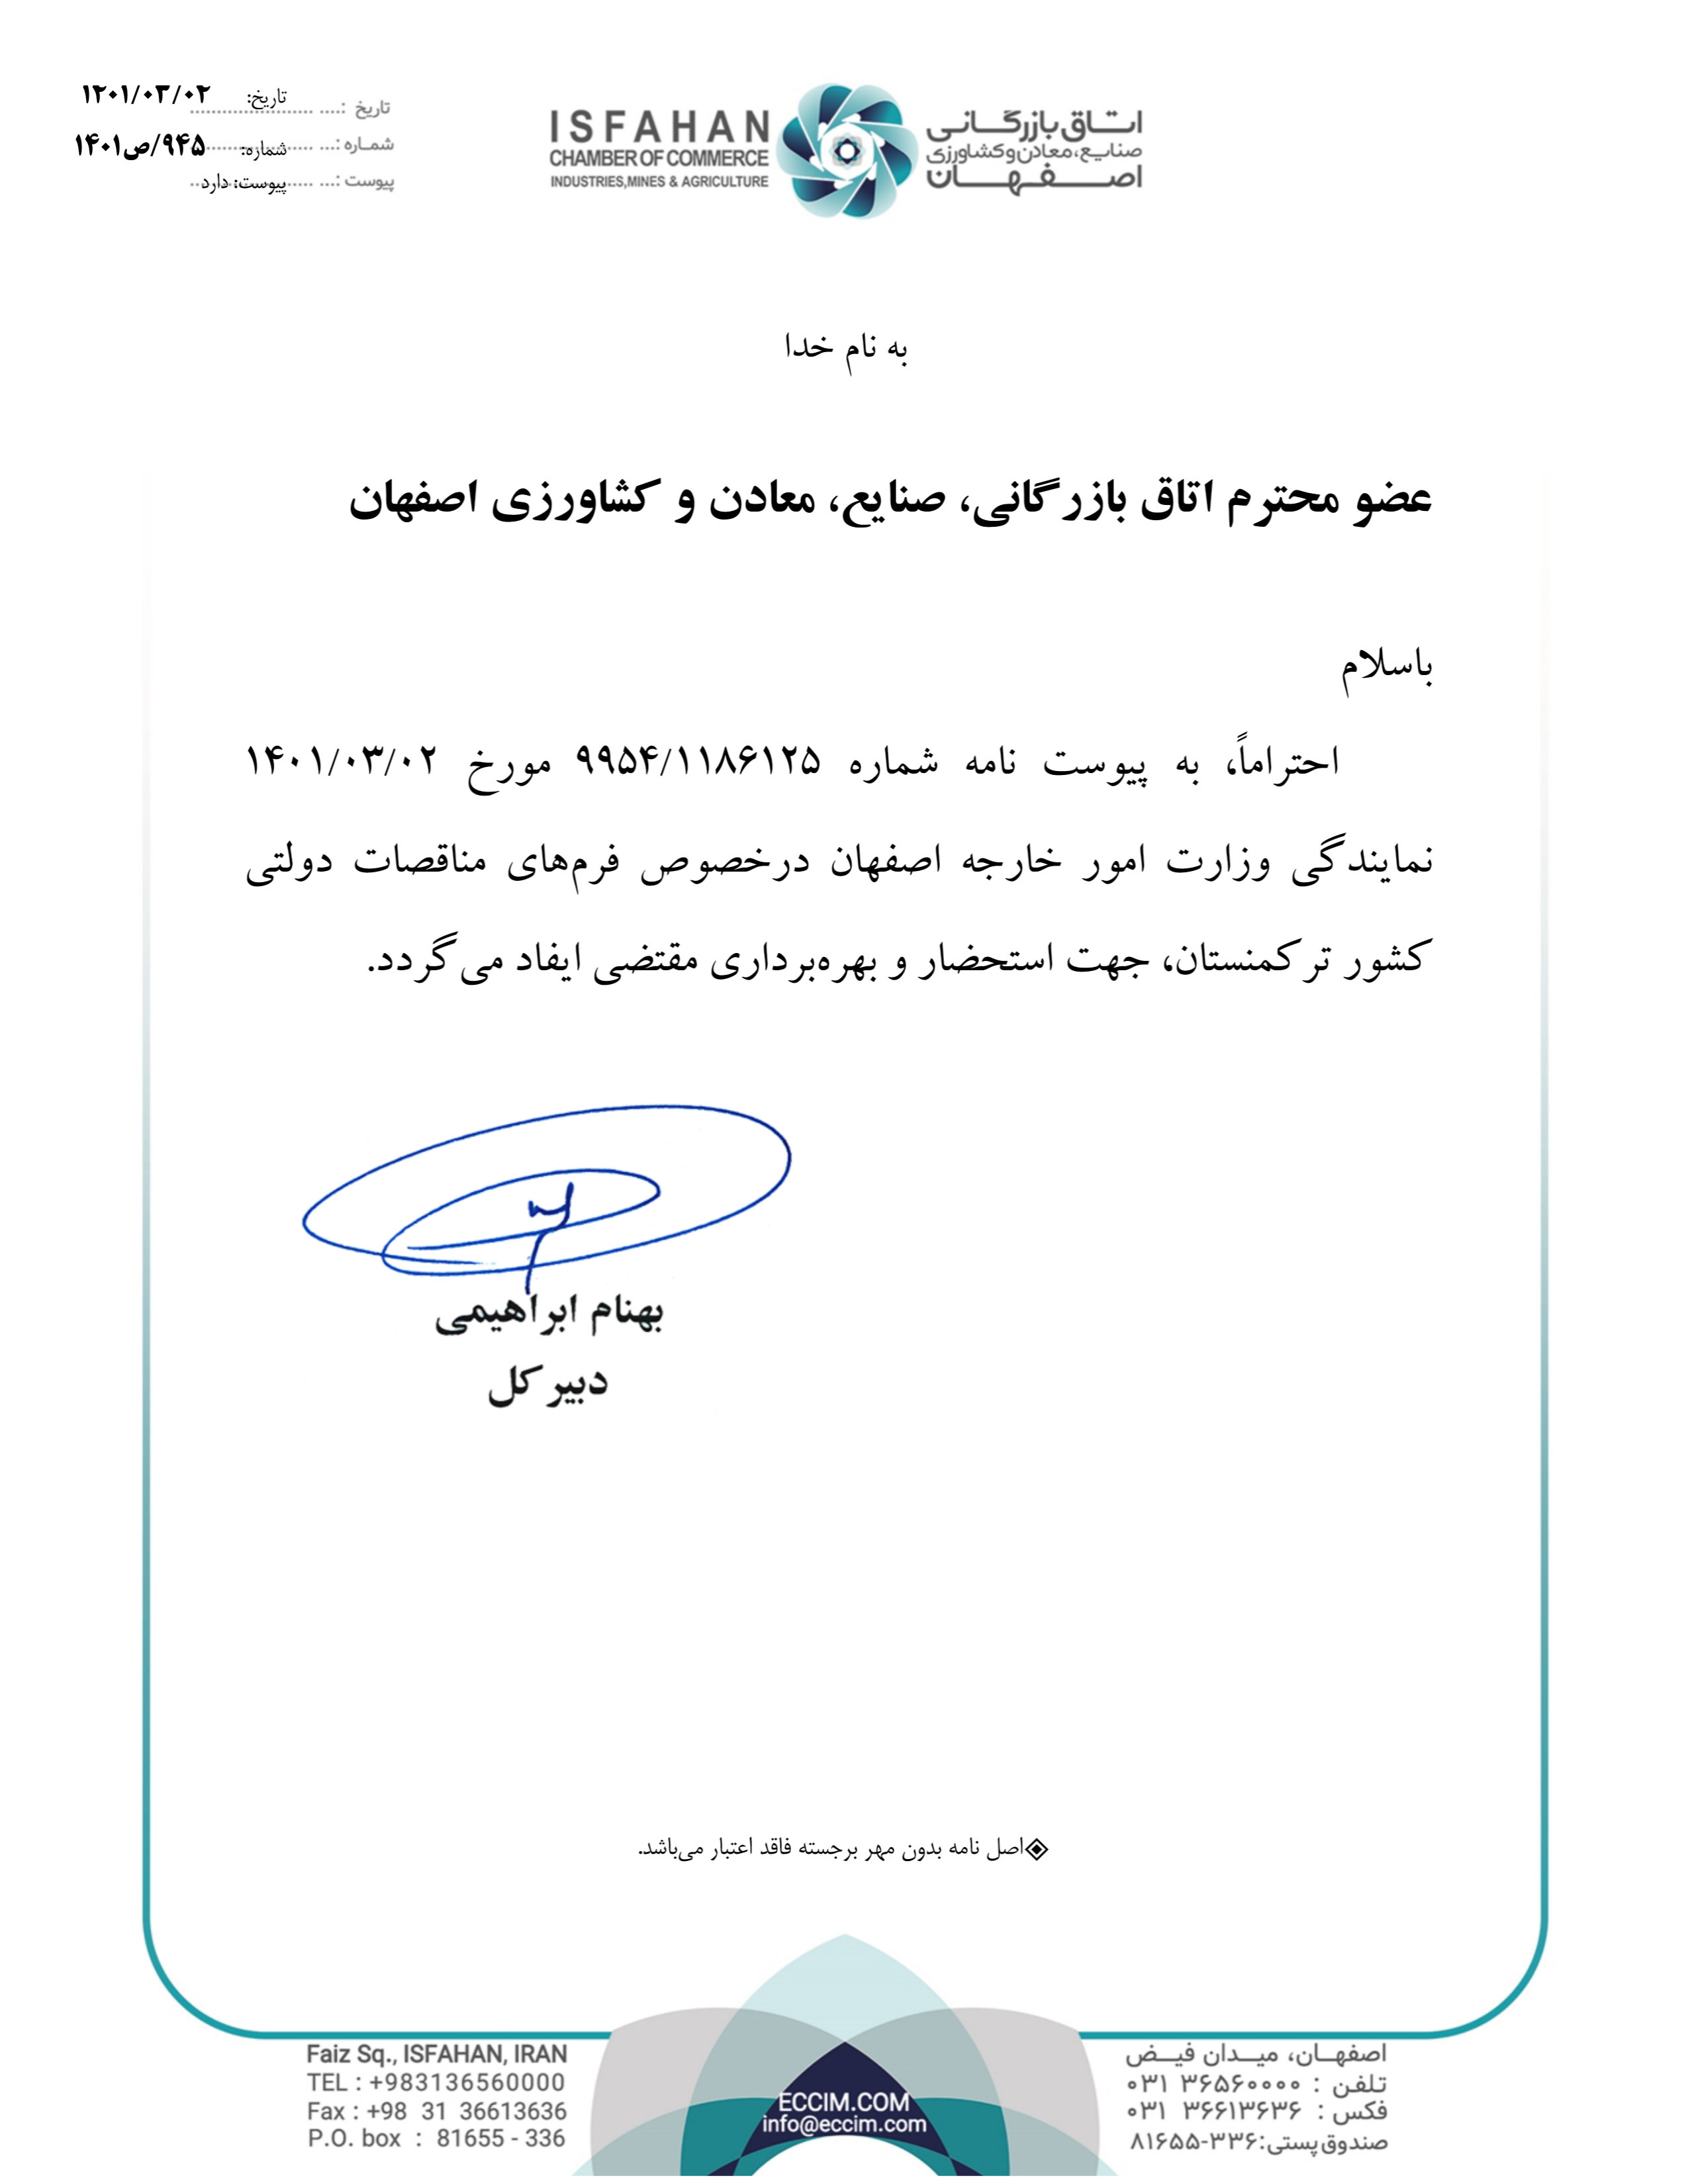 ISFAHAN
CHAMBER OF COMMERCE
INDUSTRIES,MINES & AGRICULTURE
اتاق بازرگانی
صنایع، معادن و کشاورزی
اصفهان
تاریخ :.... تاریخ: ۱۴۰۱/۰۳/۰۲
شماره :... شماره: ۹۴۵/ص۱۴۰۱
پیوست :... پیوست: دارد
به نام خدا
عضو محترم اتاق بازرگانی، صنایع، معادن و کشاورزی اصفهان
باسلام
احتراماً، به پیوست نامه شماره ۹۹۵۴/۱۱۸۶۱۲۵ مورخ ۱۴۰۱/۰۳/۰۲
نمایندگی وزارت امور خارجه اصفهان درخصوص فرم‌های مناقصات دولتی
کشور ترکمنستان، جهت استحضار و بهره‌برداری مقتضی ایفاد می‌گردد.
بهنام ابراهیمی
دبیر کل
◈اصل نامه بدون مهر برجسته فاقد اعتبار می‌باشد.
اصفهان، میدان فیض
تلفن : ۳۶۵۶۰۰۰۰ ۰۳۱
فکس : ۳۶۶۱۳۶۳۶ ۰۳۱
صندوق پستی:۳۳۶-۸۱۶۵۵
ECCIM.COM
info@eccim.com
Faiz Sq., ISFAHAN, IRAN
TEL : +983136560000
Fax : +98 31 36613636
P.O. box : 81655 - 336